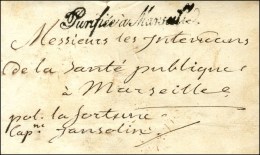 Purifié à Marseille
Messieurs les Intendans
de la Santé publique
à Marseille
pol. la fortune
Capne Jansolin